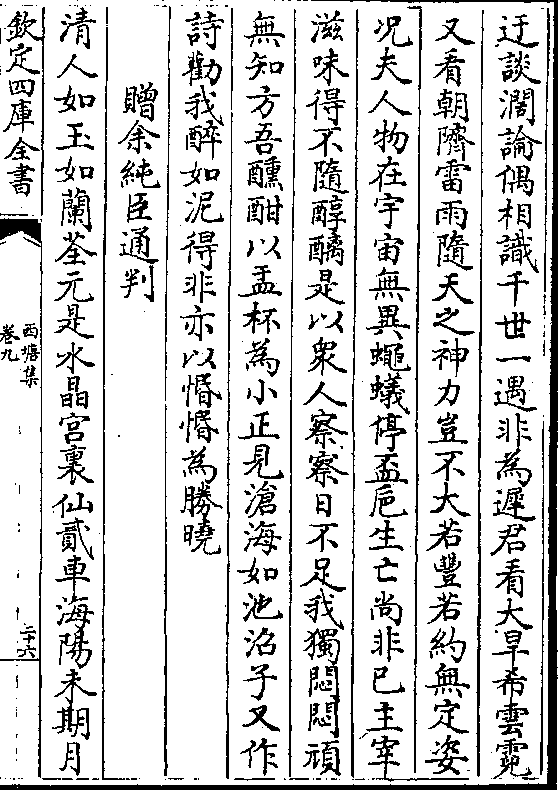 迂談濶論偶相識千世一遇非為遲君看大旱希雲霓
又看朝隮雷雨隨天之神力豈不大若豐若約無定姿
况夫人物在宇宙無異蠅蟻停盃巵生亡尚非已主宰
滋味得不隨醇醨是以衆人察察日不足我獨悶悶頑
無知方吾醺酣以盂杯為小正見滄海如池沼子又作
詩勸我醉如泥得非亦以惛惛為勝曉
贈余純臣通判
清人如玉如蘭荃元是水晶宫裏仙貳車海陽未期月
欽定四庫全書
西塘集
卷九
二十六